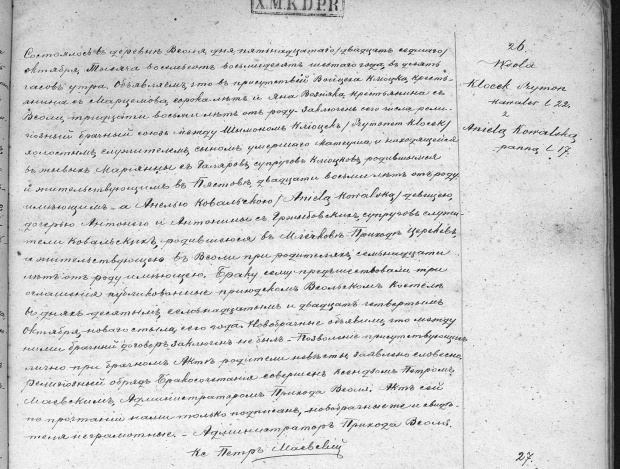 X.M.K.D.P.R
Состоялось въ деревнѣ Весоля дня пятнадцатаго/двадцать седьмаго/
Октября тысяча восемьсотъ восьмидесятъ шестаго года въ десять
часовъ утра. Объявляемъ, что въ присутствіи Войцеха Клюцка, кресть-
янина съ Марцемова, сорока лѣтъ и Яна Возняка крестьянина съ
Весоли, тридцати восьми лѣтъ отъ роду заключенъ сего числа рели-
гіозный брачный союзъ между Шимономъ Клюцекъ /Szymonem Klocek/
холостымъ служителемъ, сыномъ умершаго и находящейся
въ живыхъ Маріянны съ супруговъ Клюцковъ, родившимся
и жительствующимъ въ двадцати восьми лѣтъ отъ роду
имѣющимъ - а Анелью Ковальскою /Aniela Kowalska/ дѣвицею,
дочерью Антонія и Антонины съ супруговъ служи-
тели Ковальскихъ, родившеюся въ Приходѣ
а жительствующею въ Весоли при родителяхъ, семьнадцати
лѣтъ отъ роду имѣющею. Браку сему предшествовали три
оглашенія публикованныя въ приходскомъ Весольскомъ Костелѣ
въ дняхъ десятымъ, семьнадцатымъ и двадцать четвертымъ
Октября новаго стиля, сего года. Новобрачные объявили, что между
ними брачный договоръ заключенъ не былъ - Позволеніе присутствующихъ
лично при брачномъ Актѣ родителей невѣсты заявлено словесно.
Религіозный обрядъ бракосочетанія совершенъ Ксендзомъ Петромъ
Маевскимъ Администраторомъ Прихода Весоля. Актъ сей
по прочтеніи нами только подписанъ, новобрачные же и свидѣ-
тели неграмотные. - Администраторъ Прихода Весоля.
Кс Петръ Маевскій
26.
Wesola
Klocek Szymon
kawaler l. 22.
z
Aniela Kowalska,
panna l. 17.
27.